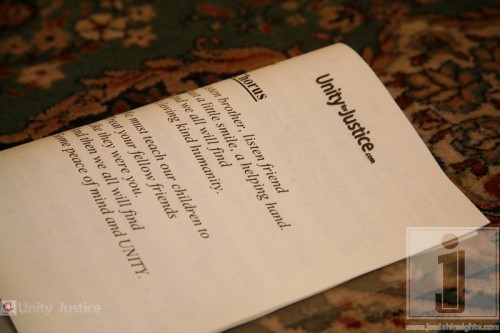 Unity-Justice.com
horus
sten brother, listen friend
a little smile, a helping hand.
nd we all will find
oving kind humanity.
e must reach our children to
eat your fellow friends
ke they were you.
nd then we all will find
me peace of mind and UNITY.
Unity Justice
j
www.jewishinsights.com